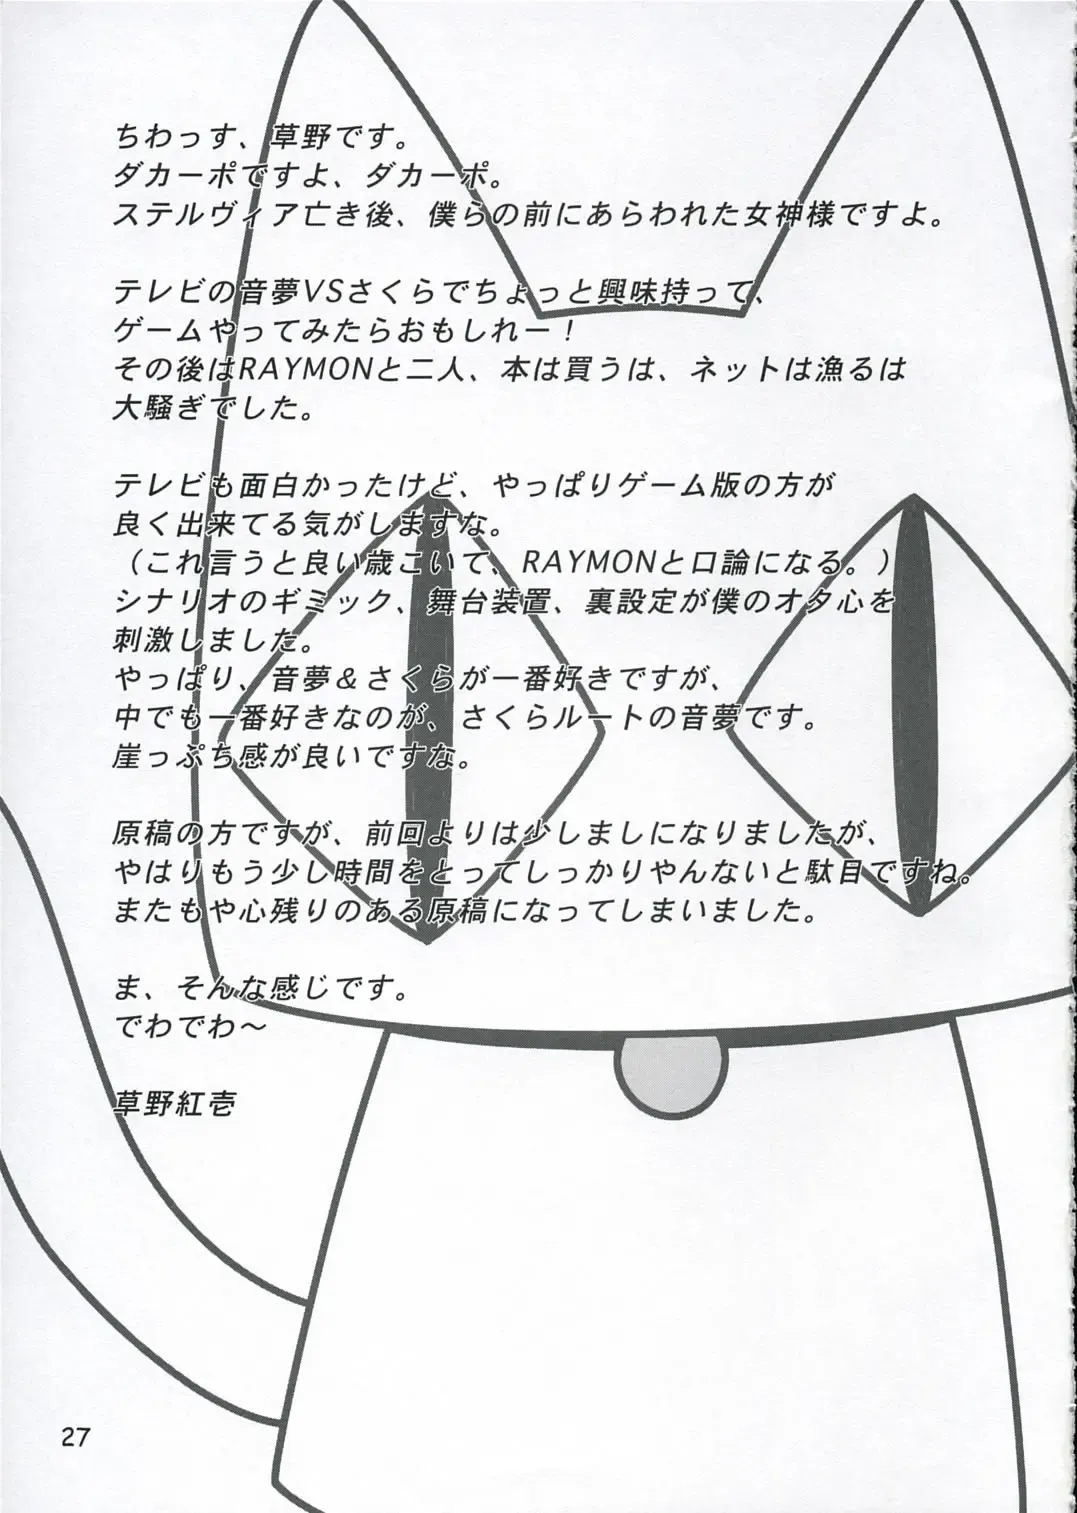 ちわっす、草野です。
ダカーポですよ、ダカーポ。
ステルヴィア亡き後、僕らの前にあらわれた女神様ですよ。
テレビの音夢VSさくらでちょっと興味持って、
ゲームやってみたらおもしれー！
その後はRAYMONと二人、本は買うは、ネットは漁るは
大騒ぎでした。
テレビも面白かったけど、やっぱりゲーム版の方が
良く出来てる気がしますな。
（これ言うと良い歳こいて、RAYMONと口論になる。）
シナリオのギミック、舞台装置、裏設定が僕のオタ心を
刺激しました。
やっぱり、音夢＆さくらが一番好きですが、
中でも一番好きなのが、さくらルートの音夢です。
崖っぷち感が良いですな。
原稿の方ですが、前回よりは少しましになりましたが、
やはりもう少し時間をとってしっかりやんないと駄目ですね。
またもや心残りのある原稿になってしまいました。
ま、そんな感じです。
でわでわ～
草野紅壱
27